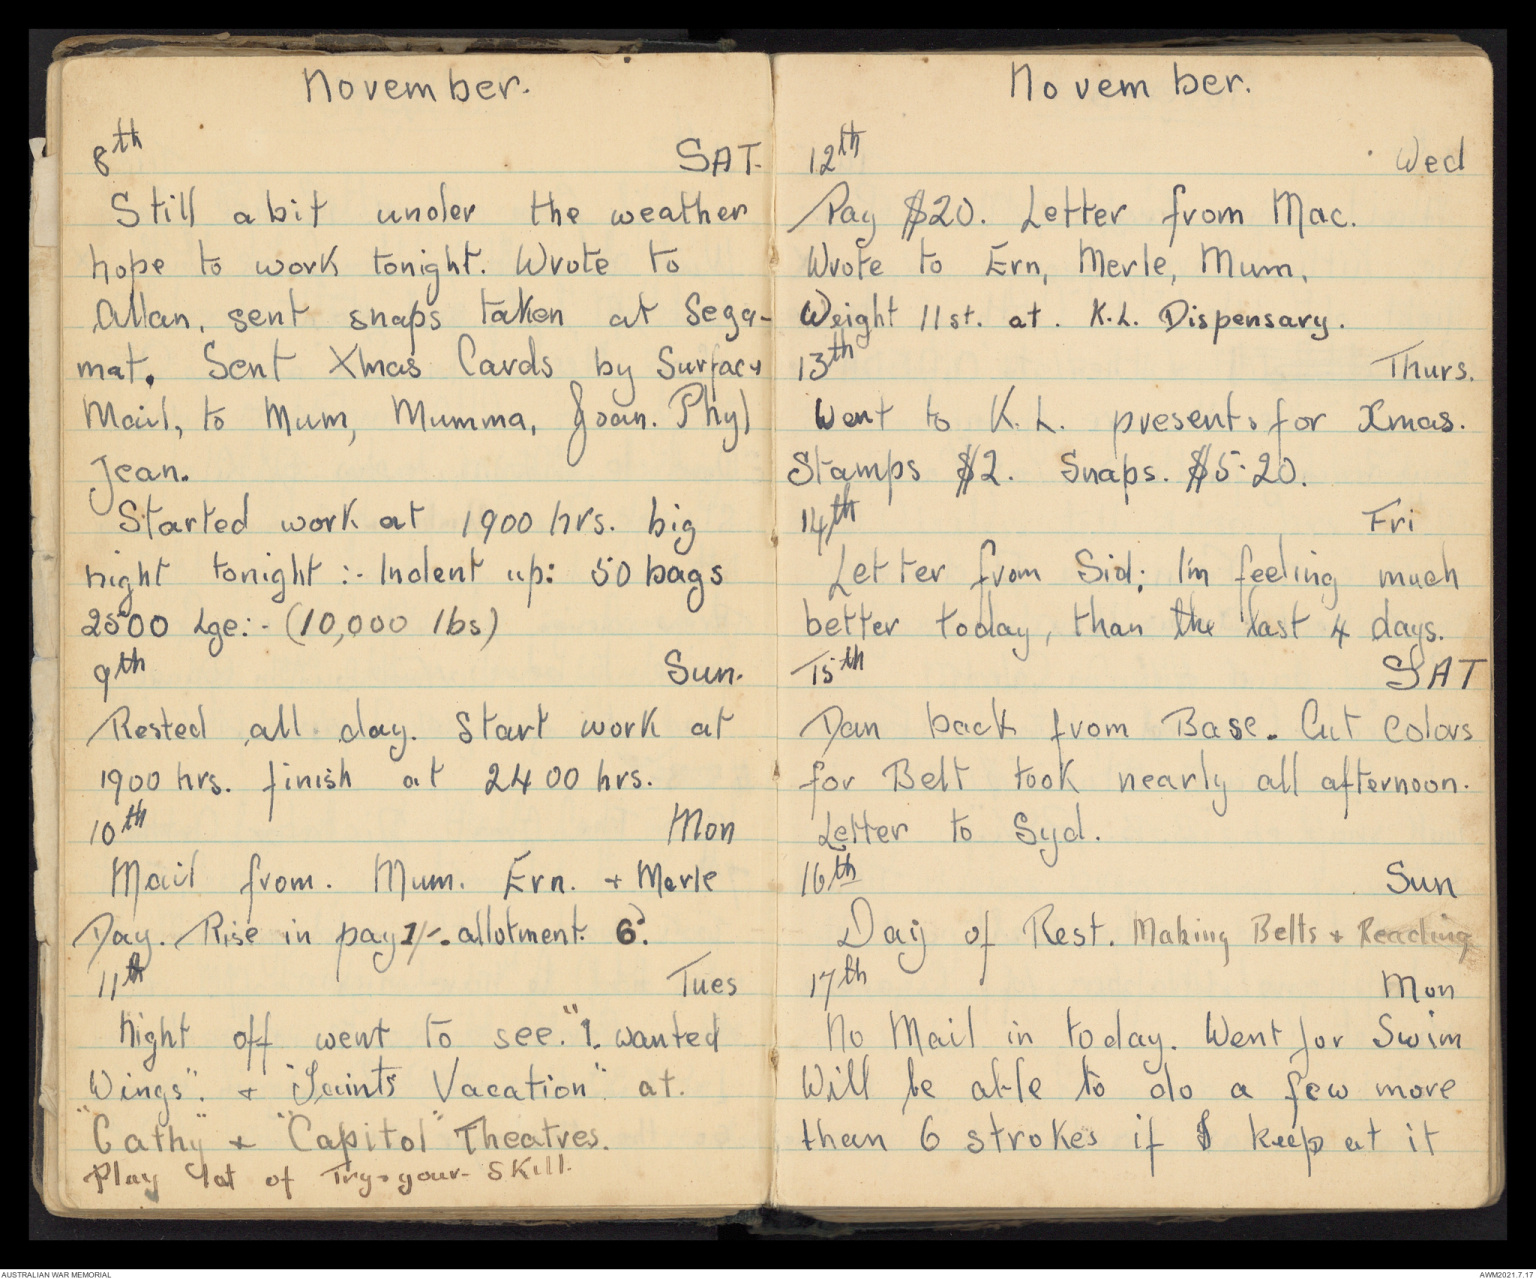 November.
8th SAT.
Still a bit under the weather
hope to work tonight. Wrote to
Allan, sent snaps taken at Sega-
mat. Sent Xmas Cards by Surface
Mail, to Mum, Mumma, Joan. Phyl
Jean.
Started work at 1900 hrs. big
night tonight :- Indent up: 50 bags
2500 Lge:- (10,000 lbs)
9th Sun.
Rested all day. Start work at
1900 hrs. finish at 2400 hrs.
10th Mon
Mail from. Mum. Ern. + Merle
Day. Rise in pay 1/-. allotment. 6?
11th Tues
Night off went to see. "I. wanted
Wings". + "Saints Vacation". at.
"Cathy" + "Capitol" Theatres.
Play lot of Try-your-Skill.
November.
12th Wed
Pay $20. Letter from Mac.
Wrote to Ern, Merle, Mum.
Weight 11st. at. K.L. Dispensary.
13th Thurs.
Went to K.L. presents for Xmas.
Stamps $2. Snaps. $5.20.
14th Fri
Letter from Sid; I'm feeling much
better today, than the last 4 days.
15th SAT
Dan back from Base. Cut Colors
for Belt took nearly all afternoon.
Letter to Syd.
16th Sun
Day of Rest. Making Belts + Reading
17th Mon
No Mail in today. Went for Swim
Will be able to do a few more
than 6 strokes if I keep at it
AUSTRALIAN WAR MEMORIAL AWM2021.7.17